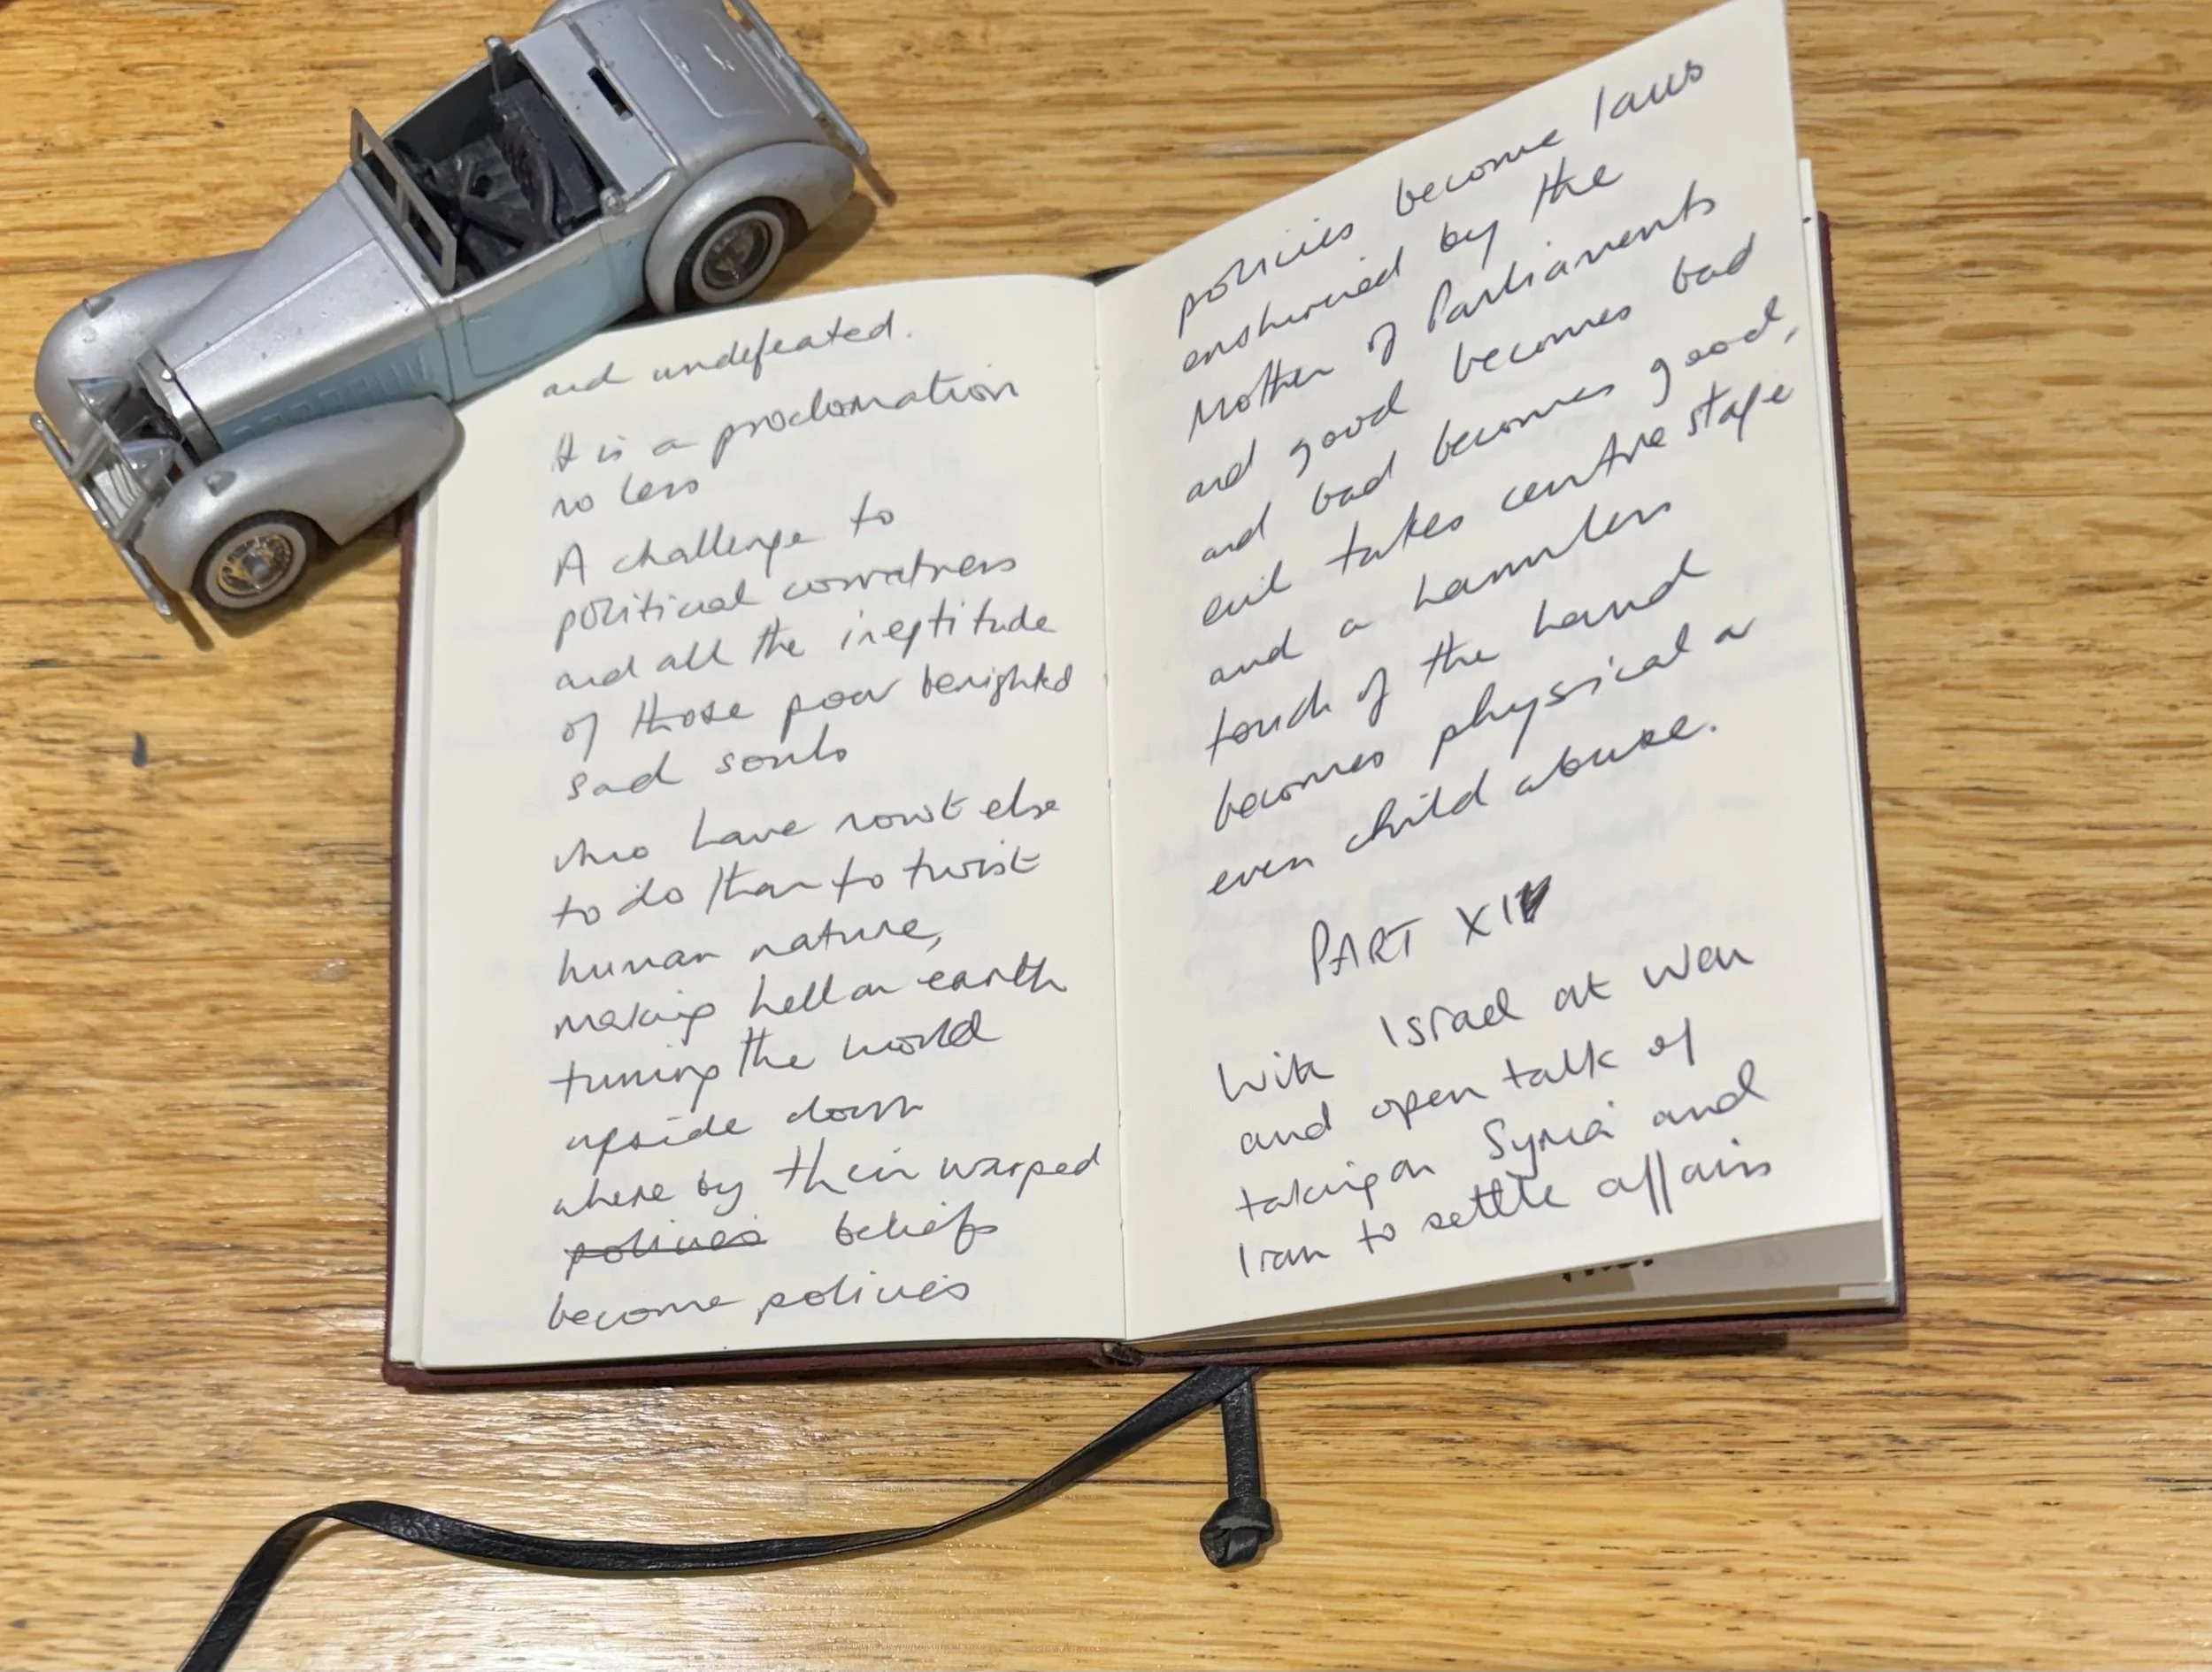 and undefeated.
It is a proclomation
no less
A challenge to
political correctness
and all the ineptitude
of those poor benighted
sad souls
who have nowt else
to do than to twist
human nature,
making hell on earth
turning the world
upside down
where by their warped
policies beliefs
become policies
policies become laws
enshrined by the
Mother of Parliaments
and good becomes bad
and bad becomes good,
evil takes centre stage
and a harmless
touch of the hand
becomes physical or
even child abuse.
PART
With Israel at war
and open talk of
taking on Syria and
Iran to settle affairs